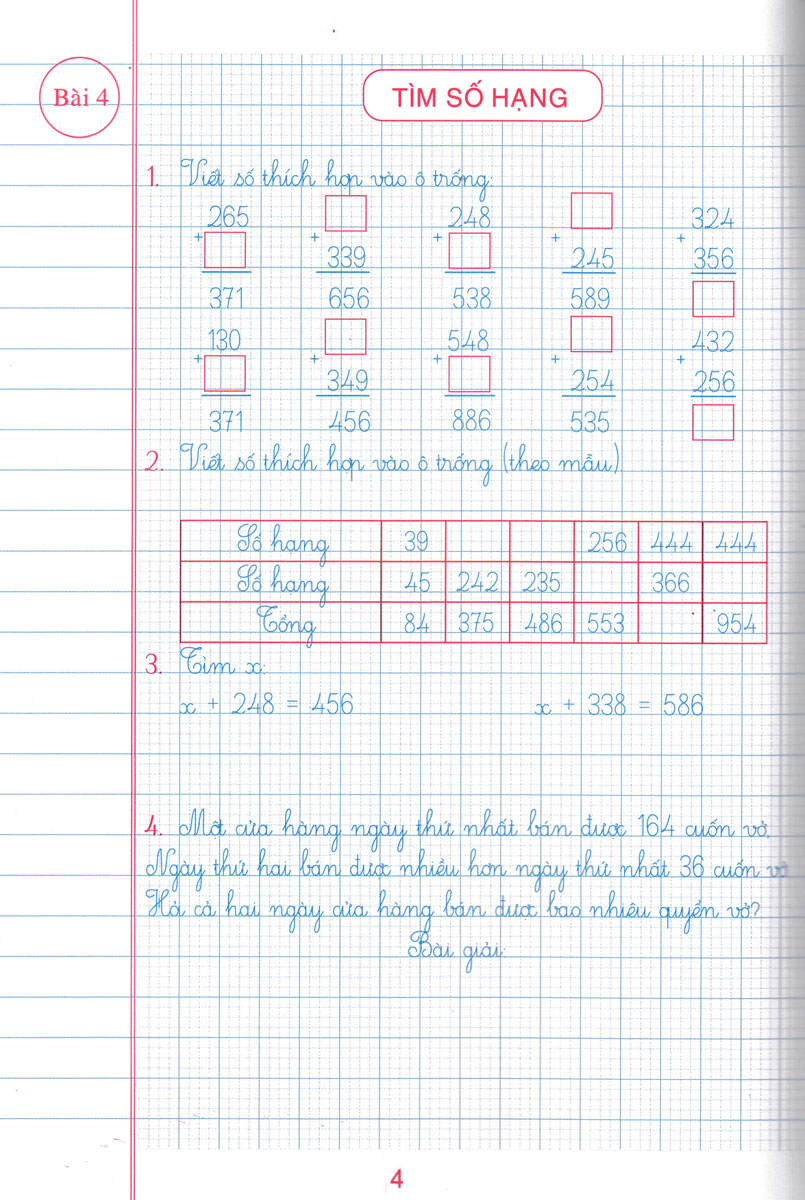 Bài 4
TÌM SỐ HẠNG
1. Viết số thích hợp vào ô trống:
265 248 324
+ + 339 + + 245 + 356
371 656 538 589
130 548 432
+ + 349 + + 254 + 256
371 456 886 535
2. Viết số thích hợp vào ô trống (theo mẫu)
Số hạng 39 256 444 444
Số hạng 45 242 235 366
Tổng 84 375 486 553 954
3. Tìm x:
x + 248 = 456 x + 338 = 586
4. Một cửa hàng ngày thứ nhất bán được 164 cuốn vở.
Ngày thứ hai bán được nhiều hơn ngày thứ nhất 36 cuốn vở
Hỏi cả hai ngày cửa hàng bán được bao nhiêu quyển vở?
Bài giải:
4